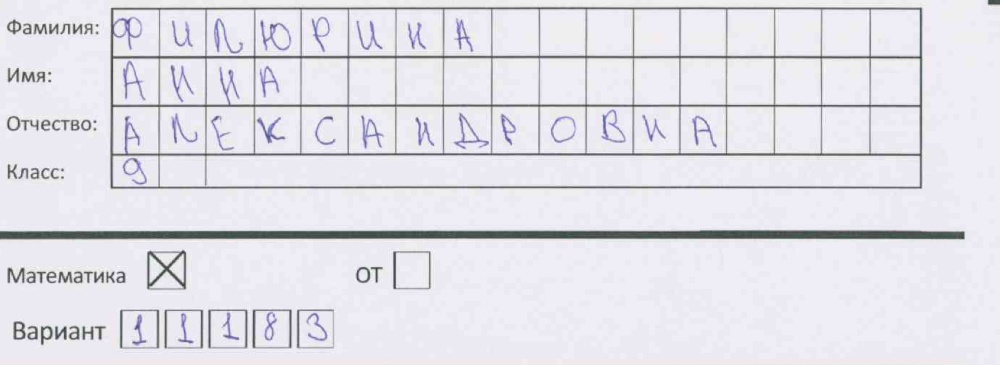 Фамилия: ФИЛЮРИНА
Имя: АННА
Отчество: АЛЕКСАНДРОВНА
Класс: 9
Математика ☒ ОТ ☐
Вариант 11183